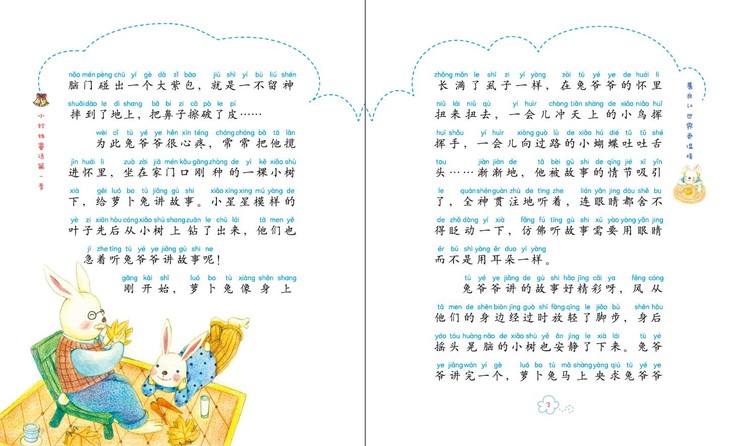 nǎo mén pèng chū yí gè dà zǐ bāo jiù shì yí bù liú shén
脑门碰出一个大紫包，就是一不留神
shuāi dào le dì shang bǎ bí zi cā pò le pí
摔到了地上，把鼻子擦破了皮……
wèi cǐ tù yé ye hěn xīn téng cháng cháng bǎ tā lǎn
为此兔爷爷很心疼，常常把他揽
jìn huái li zuò zài jiā mén kǒu gāng zhòng de yì kē xiǎo shù
进怀里，坐在家门口刚种的一棵小树
xià gěi luó bo tù jiǎng gù shi xiǎo xīng xing mú yàng de
下，给萝卜兔讲故事。小星星模样的
yè zi xiān hòu cóng xiǎo shù shang zuān le chū lái tā men yě
叶子先后从小树上钻了出来，他们也
jí zhe tīng tù yé ye jiǎng gù shi ne
急着听兔爷爷讲故事呢！
gāng kāi shǐ luó bo tù xiàng shēn shang
刚开始，萝卜兔像身上
zhǎng mǎn le shī zi yí yàng zài tù yé ye de huái li
长满了虱子一样，在兔爷爷的怀里
niǔ lái niǔ qù yí huìr chòng tiān shàng de xiǎo niǎo huī
扭来扭去，一会儿冲天上的小鸟挥
huī shǒu yí huìr xiàng guò lù de xiǎo hú dié tǔ tǔ shé
挥手，一会儿向过路的小蝴蝶吐吐舌
tou jiàn jiàn de tā bèi gù shi de qíng jié xī yǐn
头……渐渐地，他被故事的情节吸引
le quán shén guàn zhù de tīng zhe lián yǎn jing dōu shě bu
了，全神贯注地听着，连眼睛都舍不
de zhǎ dòng yí xià fǎng fú tīng gù shi xū yào yòng yǎn jing
得眨动一下，仿佛听故事需要用眼睛
ér bú shì yòng ěr duo yí yàng
而不是用耳朵一样。
tù yé ye jiǎng de gù shi hǎo jīng cǎi ya fēng cóng
兔爷爷讲的故事好精彩呀，风从
tā men de shēn biān jīng guò shí fàng qīng le jiǎo bù shēn hòu
他们的身边经过时放轻了脚步，身后
yáo tóu huàng nǎo de xiǎo shù yě ān jìng le xià lái tù yé
摇头晃脑的小树也安静了下来。兔爷
ye jiǎng wán yí gè luó bo tù mǎ shàng yāng qiú tù yé ye
爷讲完一个，萝卜兔马上央求兔爷爷
3